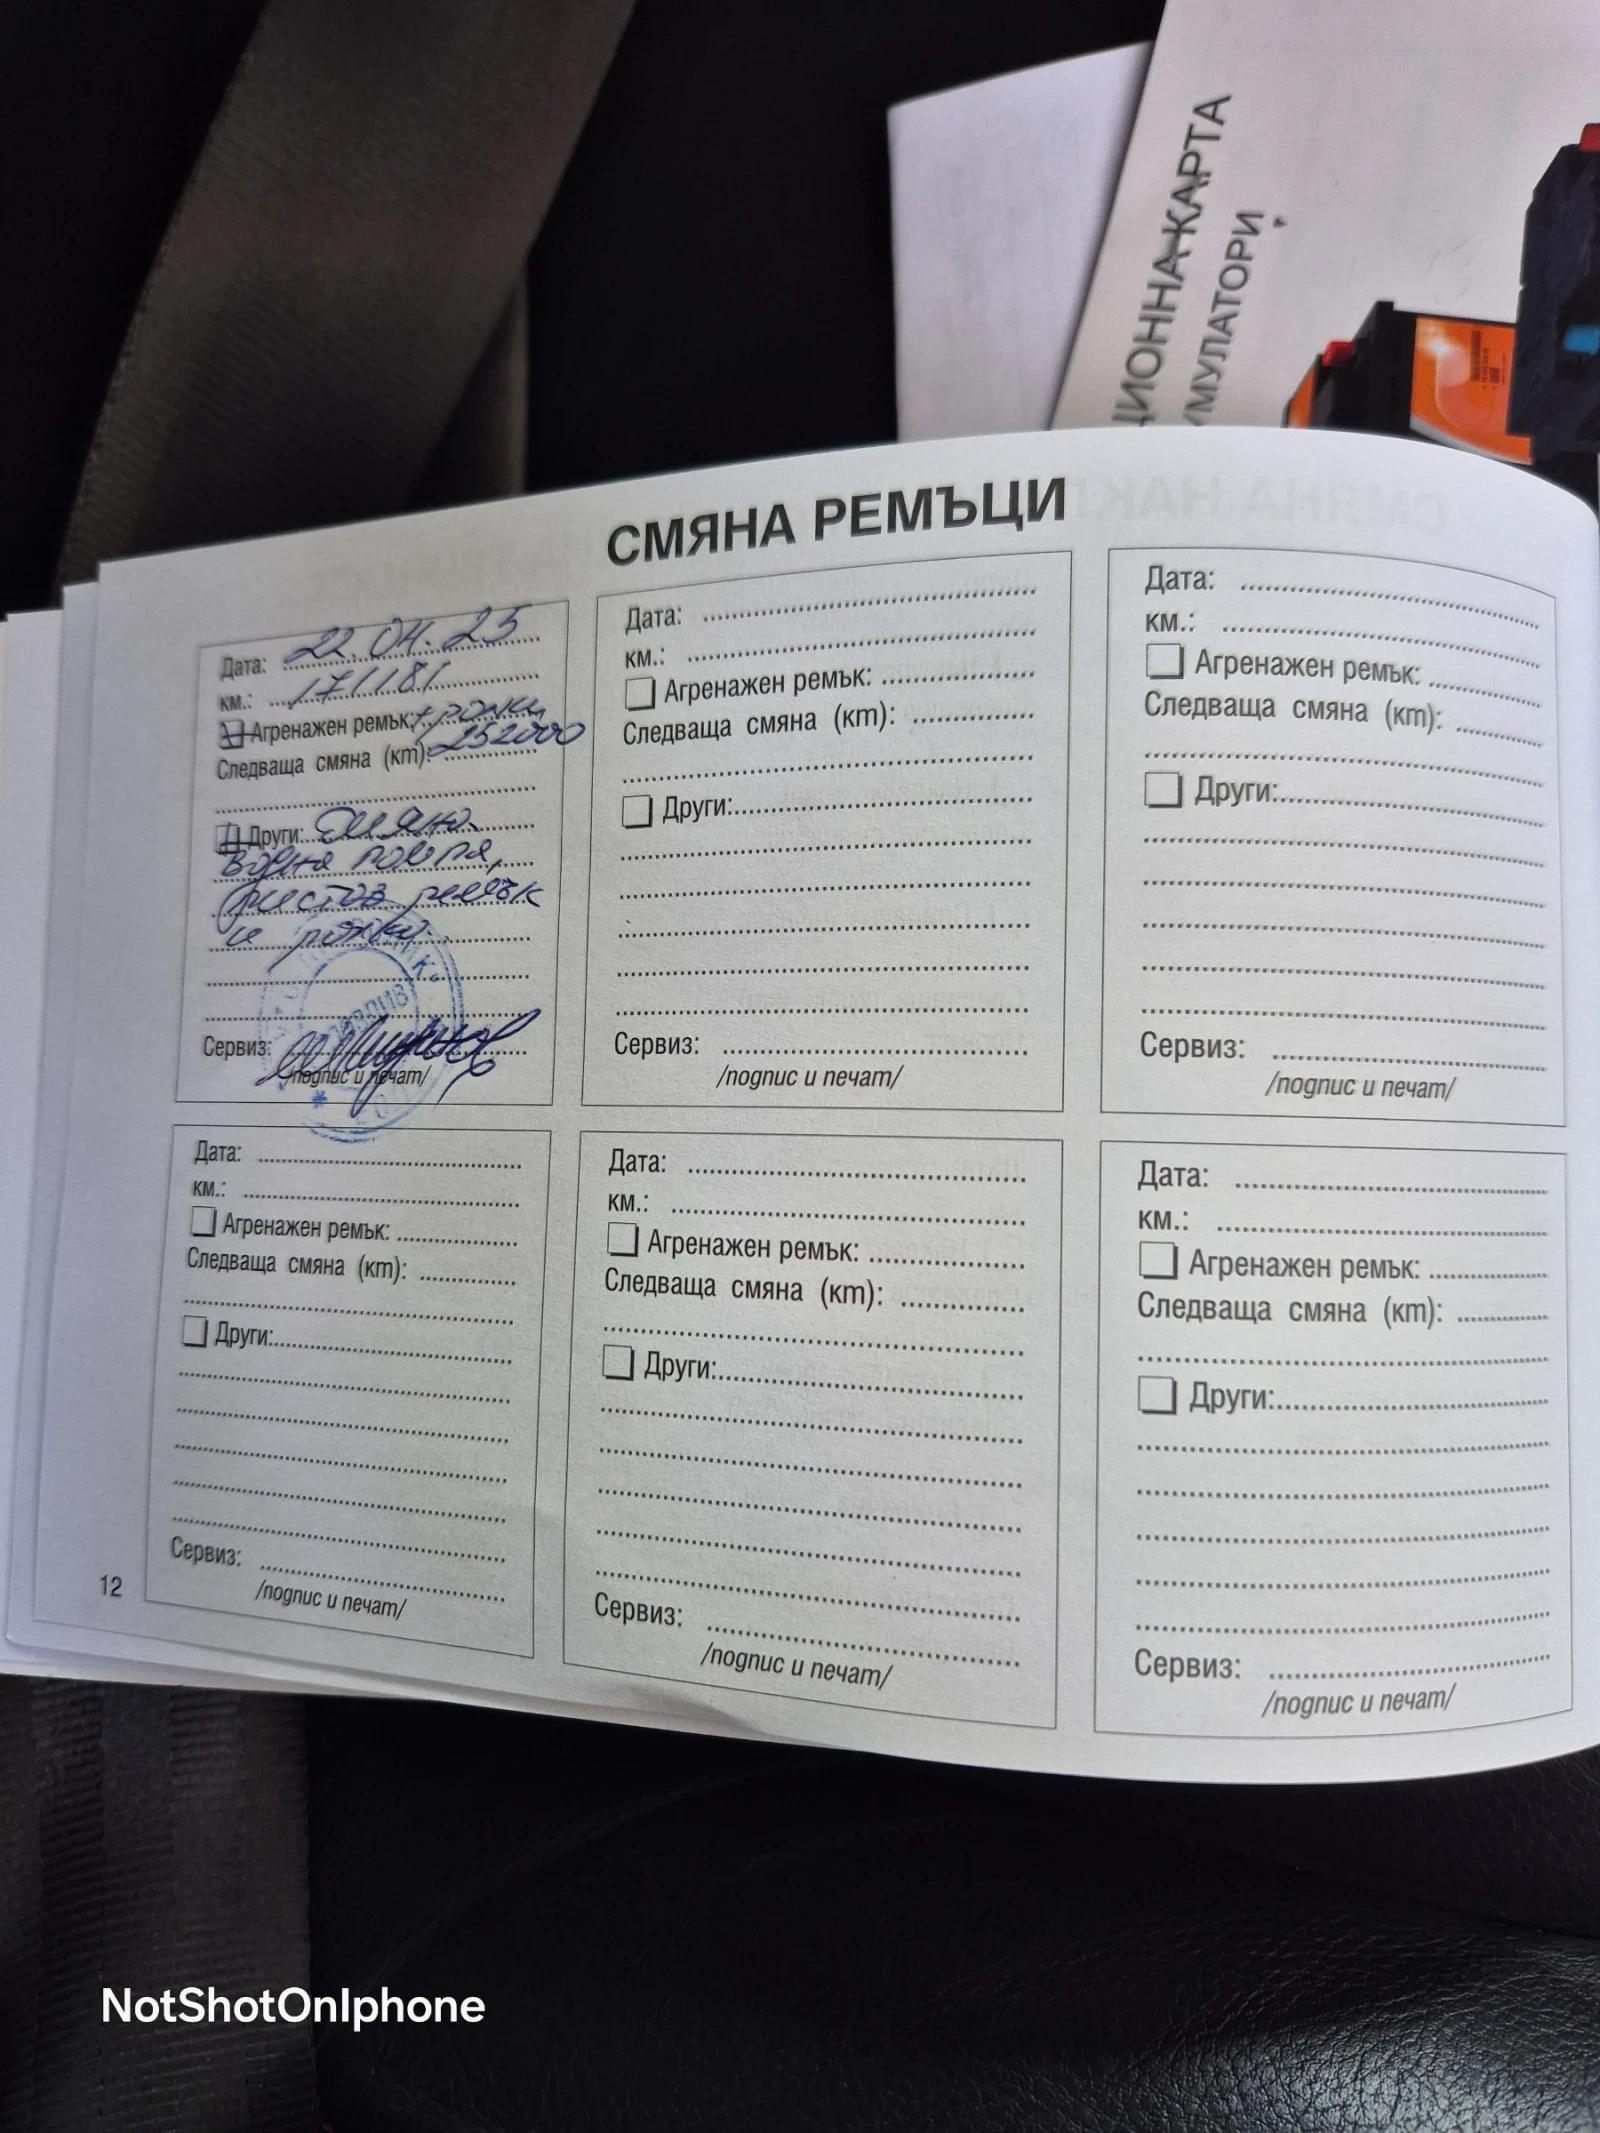 ЦИОННА КАРТА
УМУЛАТОРИ
СМЯНА РЕМЪЦИ
Дата: 22.04.25
км.: 171181
Агренажен ремък: + ролки
Следваща смяна (km): 252000
Други: Смяна
водна помпа,
пистов ремък
и ролки.
Сервиз:
/подпис и печат/
Дата:
км.:
Агренажен ремък:
Следваща смяна (km):
Други:
Сервиз:
/подпис и печат/
Дата:
км.:
Агренажен ремък:
Следваща смяна (km):
Други:
Сервиз:
/подпис и печат/
Дата:
км.:
Агренажен ремък:
Следваща смяна (km):
Други:
Сервиз:
/подпис и печат/
Дата:
км.:
Агренажен ремък:
Следваща смяна (km):
Други:
Сервиз:
/подпис и печат/
Дата:
км.:
Агренажен ремък:
Следваща смяна (km):
Други:
Сервиз:
/подпис и печат/
12
NotShotOnIphone